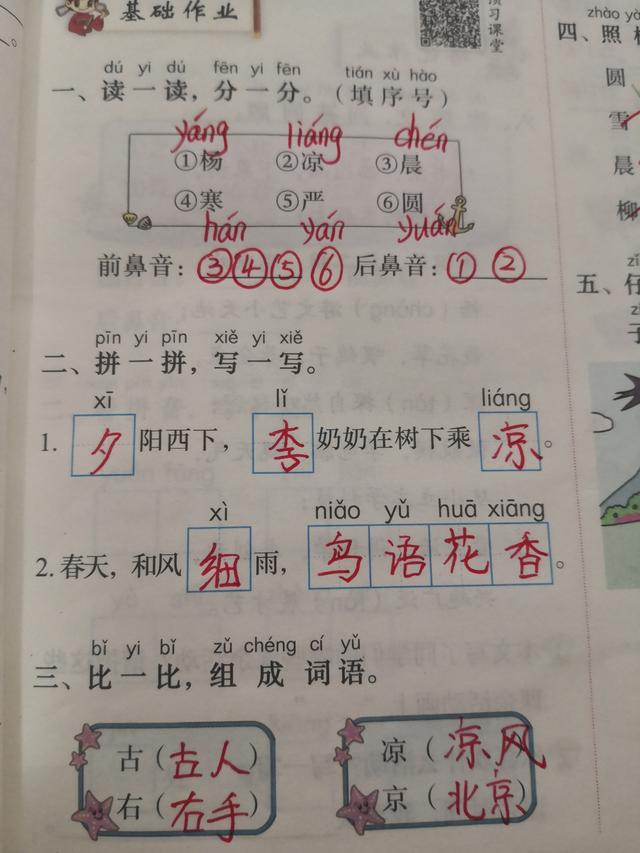 基础作业
预习课堂
dú yi dú fēn yi fēn tián xù hào
一、读一读，分一分。（填序号）
yáng liáng chén
①杨 ②凉 ③晨
④寒 ⑤严 ⑥圆
hán yán yuán
前鼻音：③④⑤⑥ 后鼻音：①②
pīn yi pīn xiě yi xiě
二、拼一拼，写一写。
xī lǐ liáng
1. 夕阳西下，李奶奶在树下乘凉。
xì niǎo yǔ huā xiāng
2. 春天，和风细雨，鸟语花香。
bǐ yi bǐ zǔ chéng cí yǔ
三、比一比，组成词语。
古（古人） 凉（凉风）
右（右手） 京（北京）
zhào
四、照
圆
雪
晨
柳
五、仔